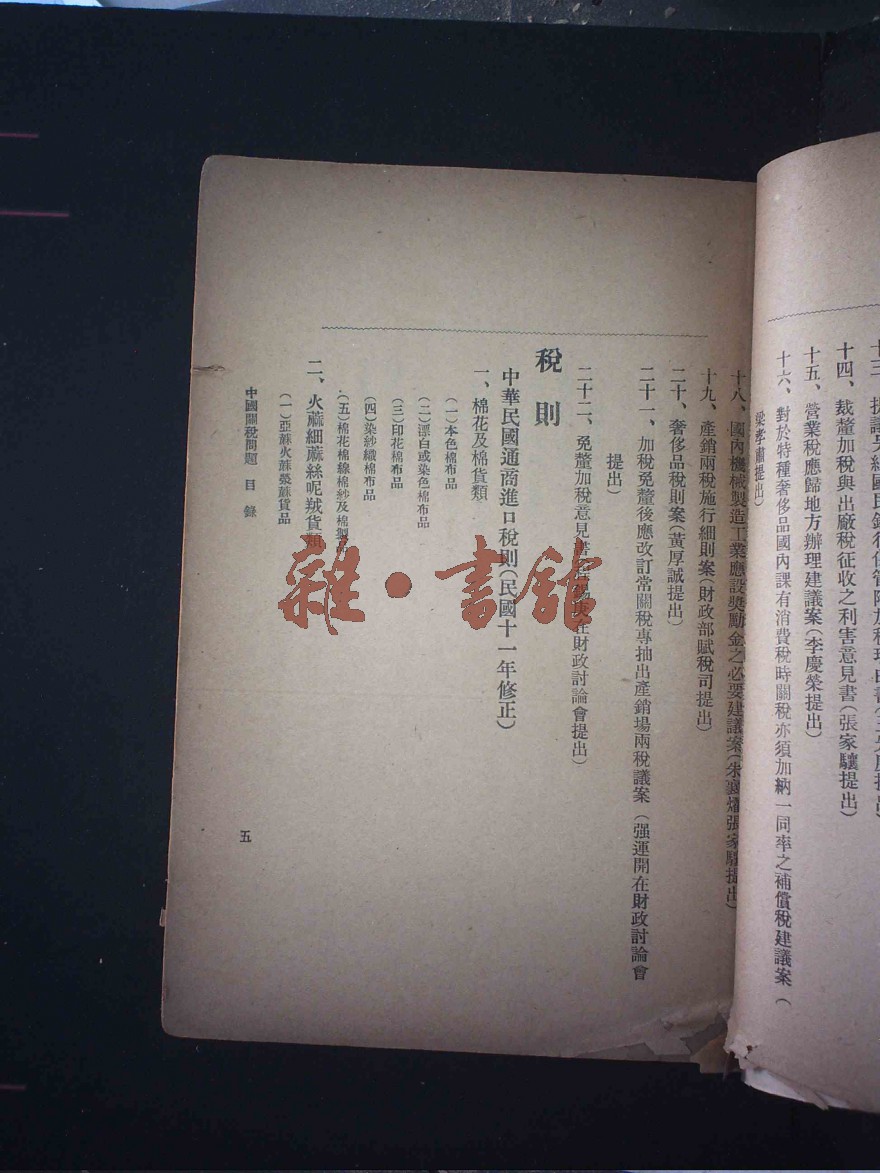 十四、裁釐加稅與出廠稅征收之利害意見書(張家驤提出)
十五、營業稅應歸地方辦理建議案(李慶榮提出)
十六、對於特種奢侈品國內課有消費稅時關稅亦須加納一同率之補償稅建議案(
梁孝肅提出)
十八、國內機械製造工業應設獎勵金之必要建議案(朱襄燿張家驤提出)
十九、產銷兩稅施行細則案(財政部賦稅司提出)
二十、奢侈品稅則案(黃厚誠提出)
二十一、加稅免釐後應改訂常關稅專抽出產銷場兩稅議案(强運開在財政討論會
提出)
二十二、免釐加稅意見在財政討論會提出)
稅則
中華民國通商進口稅則(民國十一年修正)
一、棉花及棉貨類
(一)本色棉布品
(二)漂白或染色棉布品
(三)印花棉布品
(四)染紗織棉布品
(五)棉花棉線棉紗及棉製品
二、火蔴細蔴絲呢羢貨類
(一)亞蔴火蔴檾蔴貨品
中國關稅問題 目錄
五
雜·書館